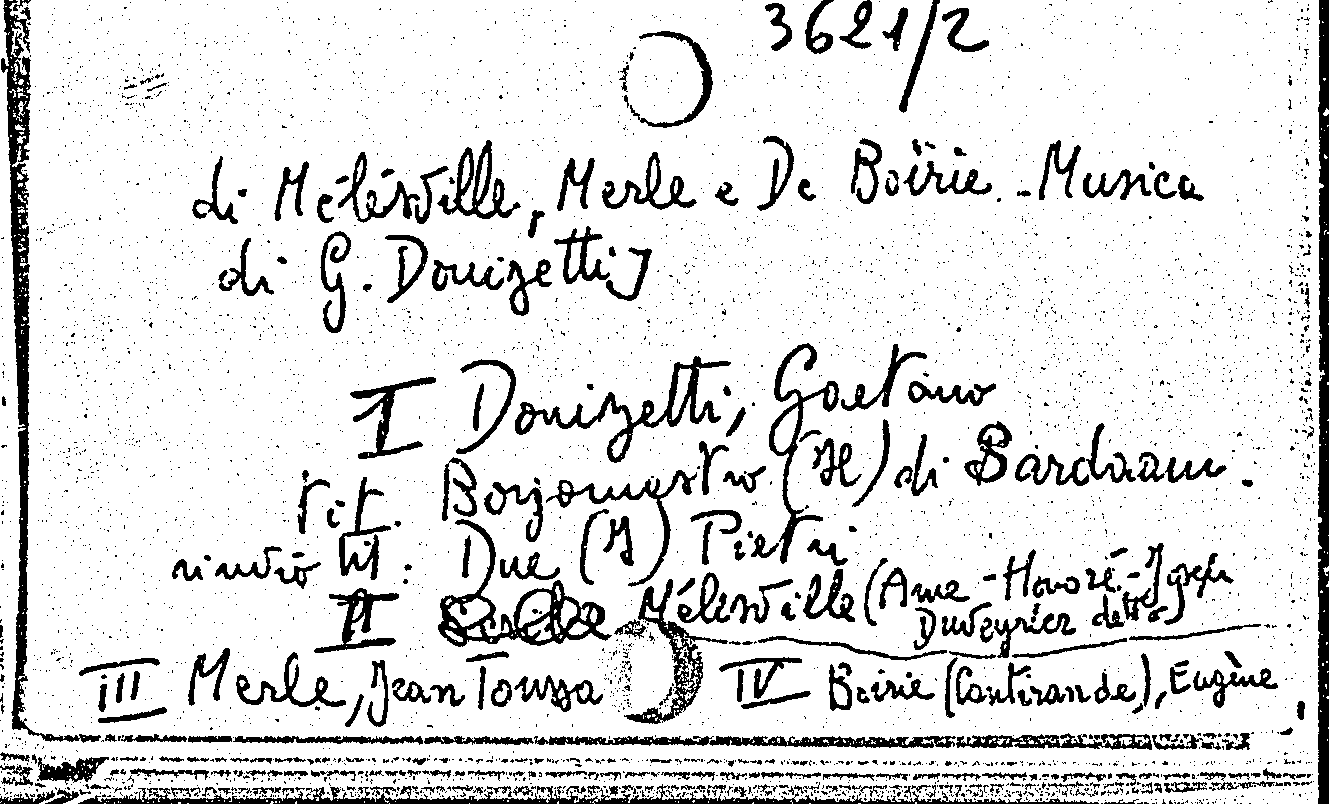 3621/2
di Mélésville, Merle e De Boïrie. - Musica
di G. Donizetti]
I Donizetti, Gaetano
rit. Borgomastro (Il) di Sardaam.
rinvio tit: Due (I) Pietri
II Mélesville (Ame-Honoré-Joseph
Duveyrier detto)
III Merle, Jean Toussa
IV Boirie (Cantirande), Eugène